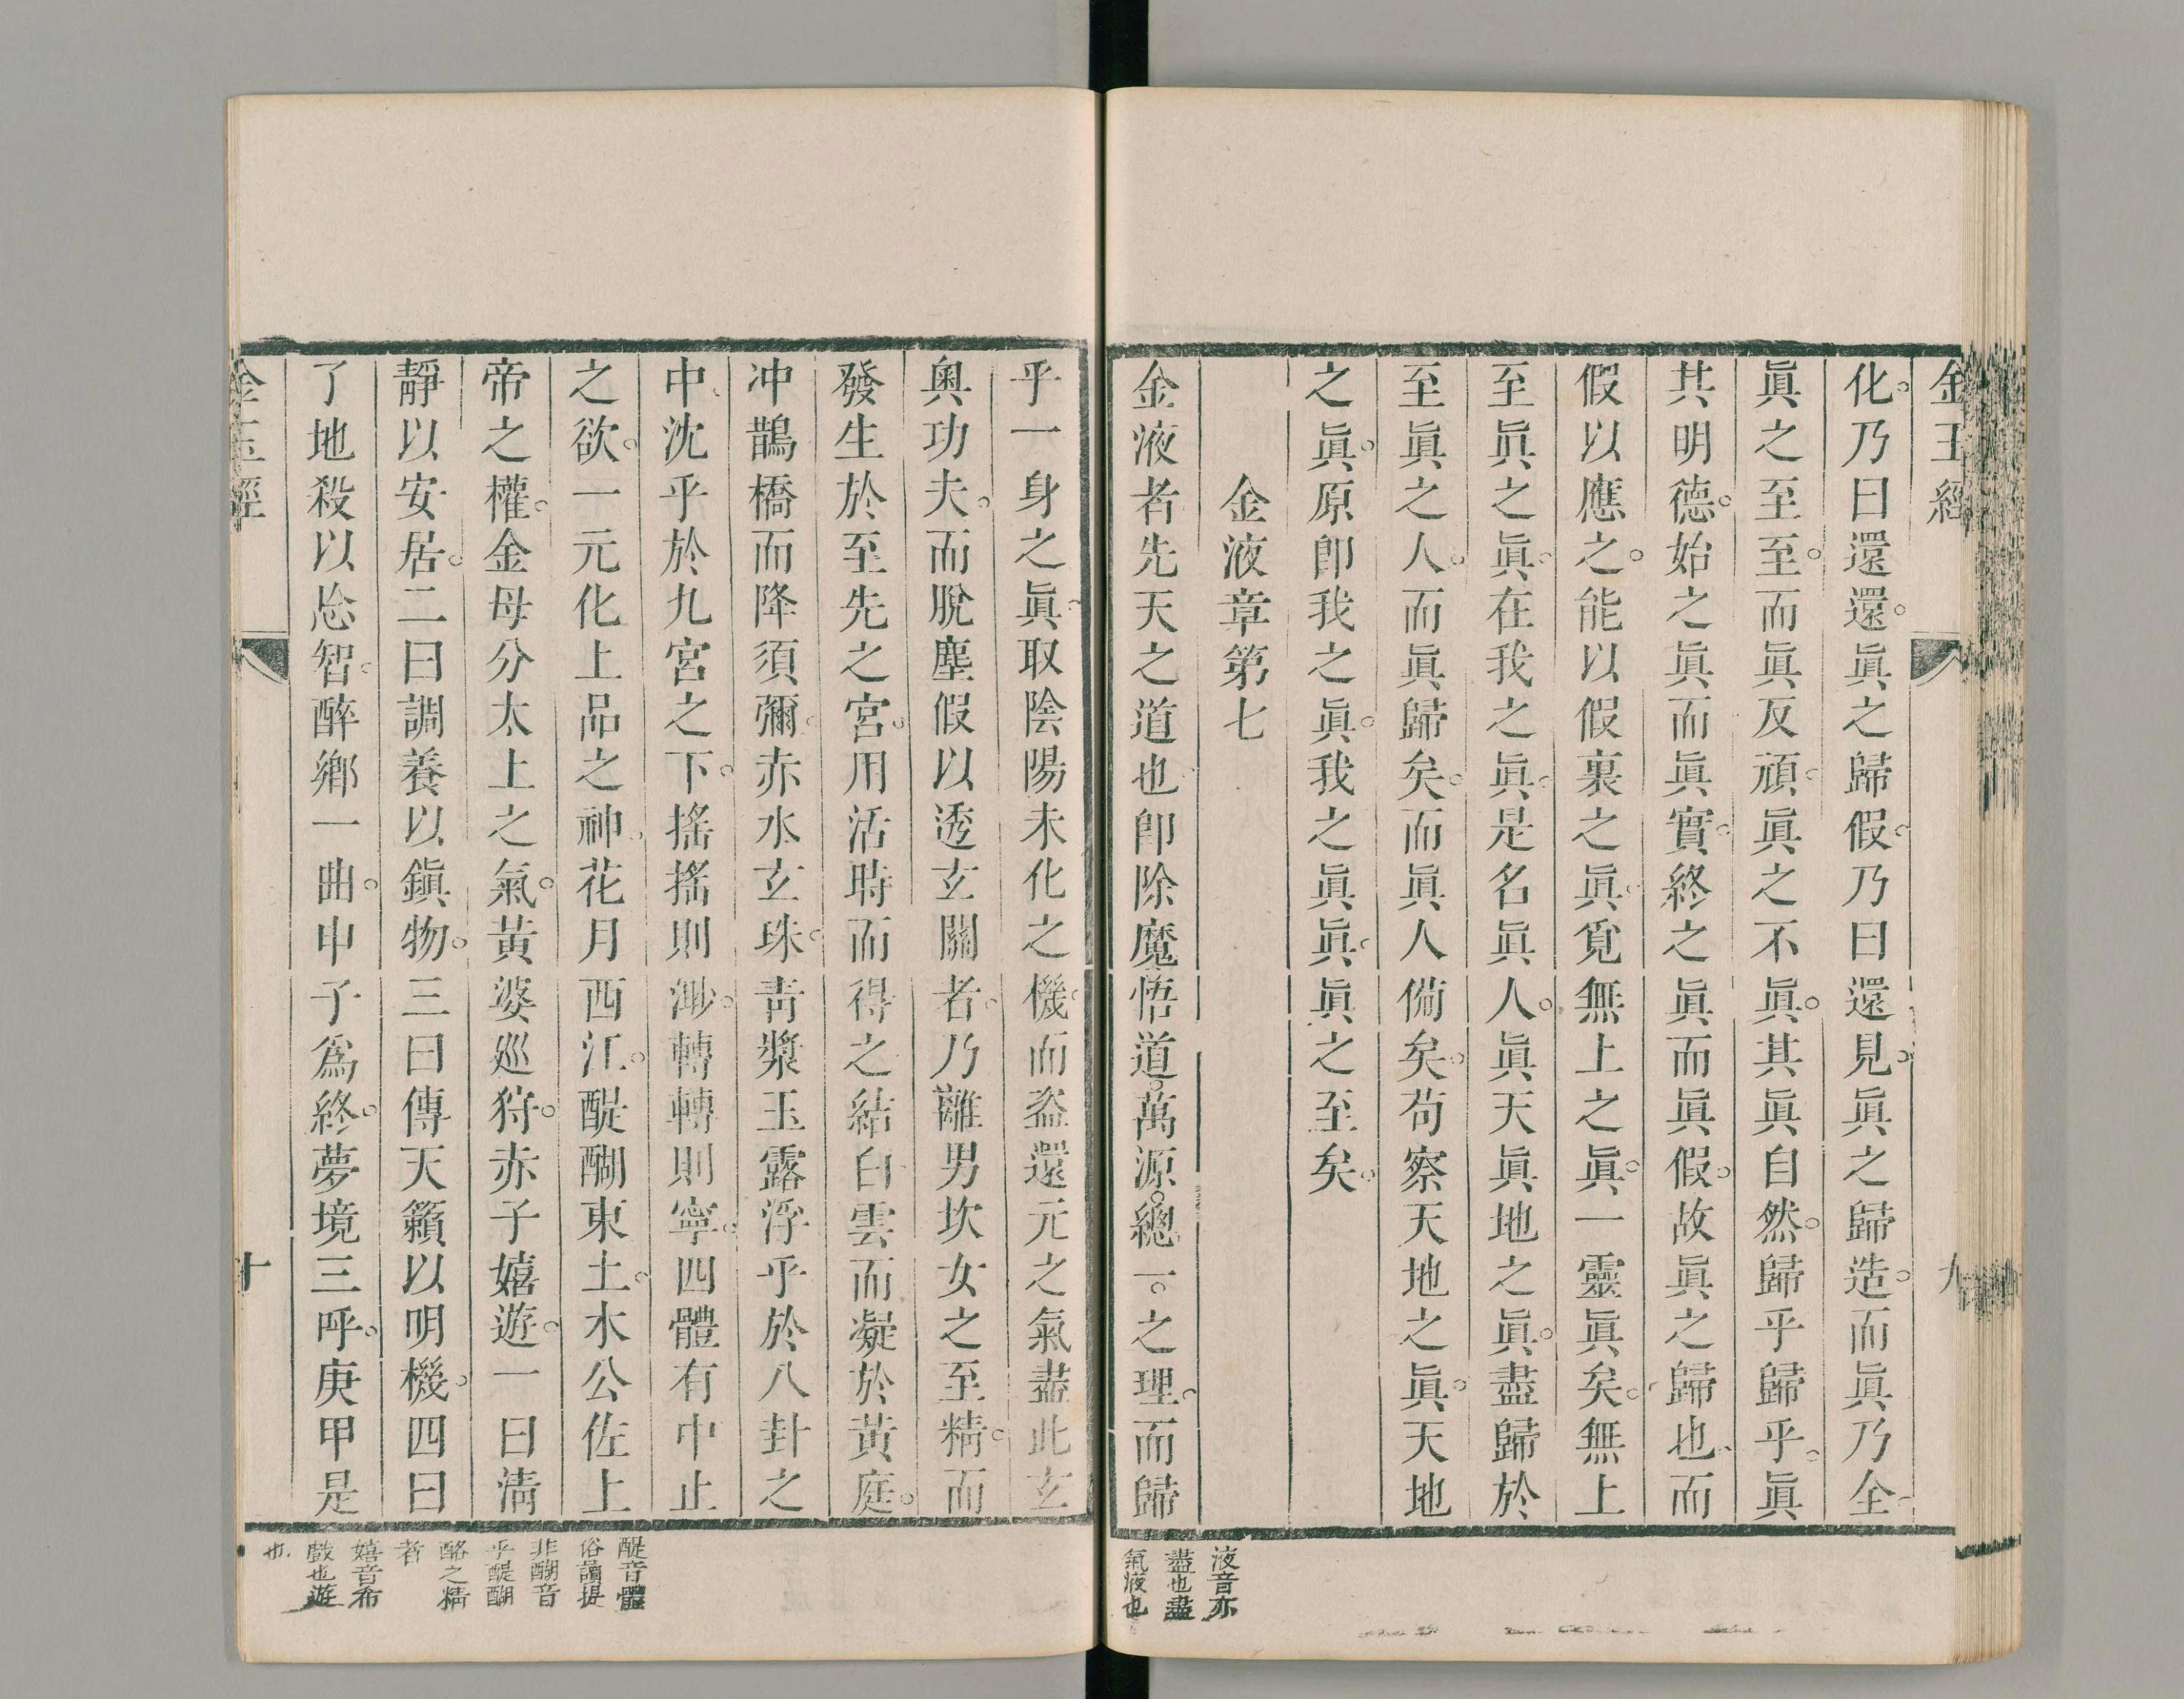 金玉經
九
化。乃曰還還。眞之歸假。乃曰還見。眞之歸造。而眞乃全。
眞之至至。而眞反頑。眞之不眞。其眞自然。歸乎歸乎。眞
其明德。始之眞而眞實。終之眞而眞假。故眞之歸也。而
假以應之。能以假裏之眞。覓無上之眞。一靈眞矣。無上
至眞之眞。在我之眞。是名眞人。眞天眞地之眞。盡歸於
至眞之人。而眞歸矣。而眞人備矣。苟察天地之眞。天地
之眞。原卽我之眞。我之眞眞。眞之至矣。
金液章第七
金液者先天之道也。卽除魔悟道。萬源。總一。之理。而歸
液音亦
盡也盡
氣液也
乎一身之眞。取陰陽未化之機。而盜還元之氣。盡此玄
奧功夫。而脫塵假以透玄關者。乃離男坎女之至精。而
發生於至先之宮。用活時而得之。結白雲而凝於黃庭。
冲鵲橋而降須彌。赤水玄珠。靑漿玉露。浮乎於八卦之
中。沈乎於九宮之下。搖搖則渺。轉轉則寧。四體有中止
之欲。一元化上品之神。花月西江。醍醐東土。木公佐上
帝之權。金母分太上之氣。黃婆巡狩。赤子嬉遊。一曰淸
靜以安居。二曰調養以鎭物。三曰傳天籟以明機。四曰
了地殺以忩智。醉鄕一曲。申子爲終。夢境三呼。庚甲是
金玉經
十
醍音體
俗讀提
非醐音
乎醍醐
酪之精
者
嬉音希
戲也遊
也